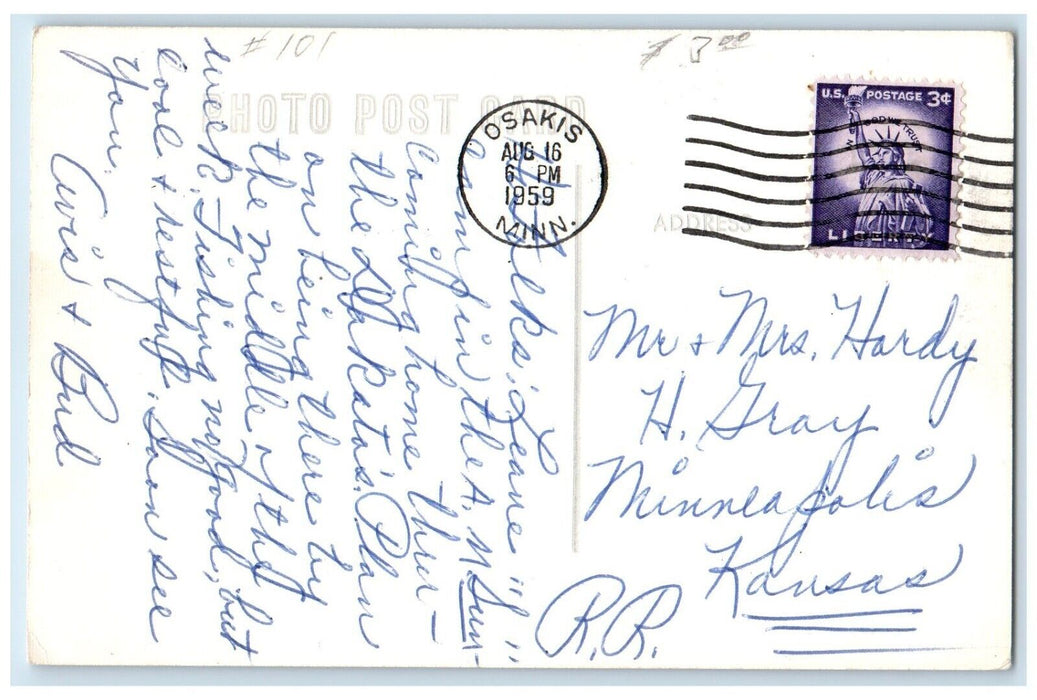 # 101
$ 3.00
PHOTO POST CARD
OSAKIS
AUG 16
6 PM
1959
MINN.
U.S. POSTAGE 3¢
IN GOD WE TRUST
LIBERTY
ADDRESS
Hi Folks: Leave "
camp in the A.M. Sun-
coming home thru-
the Dakota's. Plan
on being there by
the middle of the
week. Fishing no good, but
cool & restful. Soon see
you.
Avis & Bud
Mr & Mrs. Hardy
H. Gray
Minneapolis
Kansas
R.R.